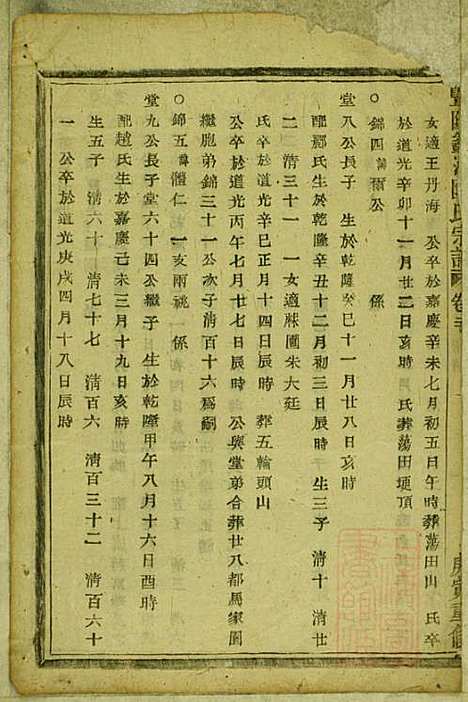 女適王丹海 公卒於嘉慶辛未七月初五日午時葬蕩田山 氏卒
於道光辛卯十一月廿二日亥時 氏葬蕩田埂頂
○錦四 諱雨公 係
堂八公長子 生於乾隆癸巳十一月廿八日亥時
配鄒氏生於乾隆辛丑十二月初三日辰時 生三子 清十 清廿
二 清三十一 一女適 朱大廷
氏卒於道光辛巳正月十四日辰時 葬五輪頭山
公卒於道光丙午七月廿七日辰時 公與堂弟合葬廿八都馬家園
繼胞弟錦三十一公次子清百十六爲嗣
○錦五 諱體仁 一亥兩祧 係
堂九公長子堂六十四公繼子 生於乾隆甲午八月十六日酉時
配趙氏生於嘉慶己未三月十九日亥時
生五子 清六十一 清七十七 清百六 清百三十二 清百六十
一 公卒於道光庚戌四月十八日辰時
氏宗譜 卷
庚寅重修